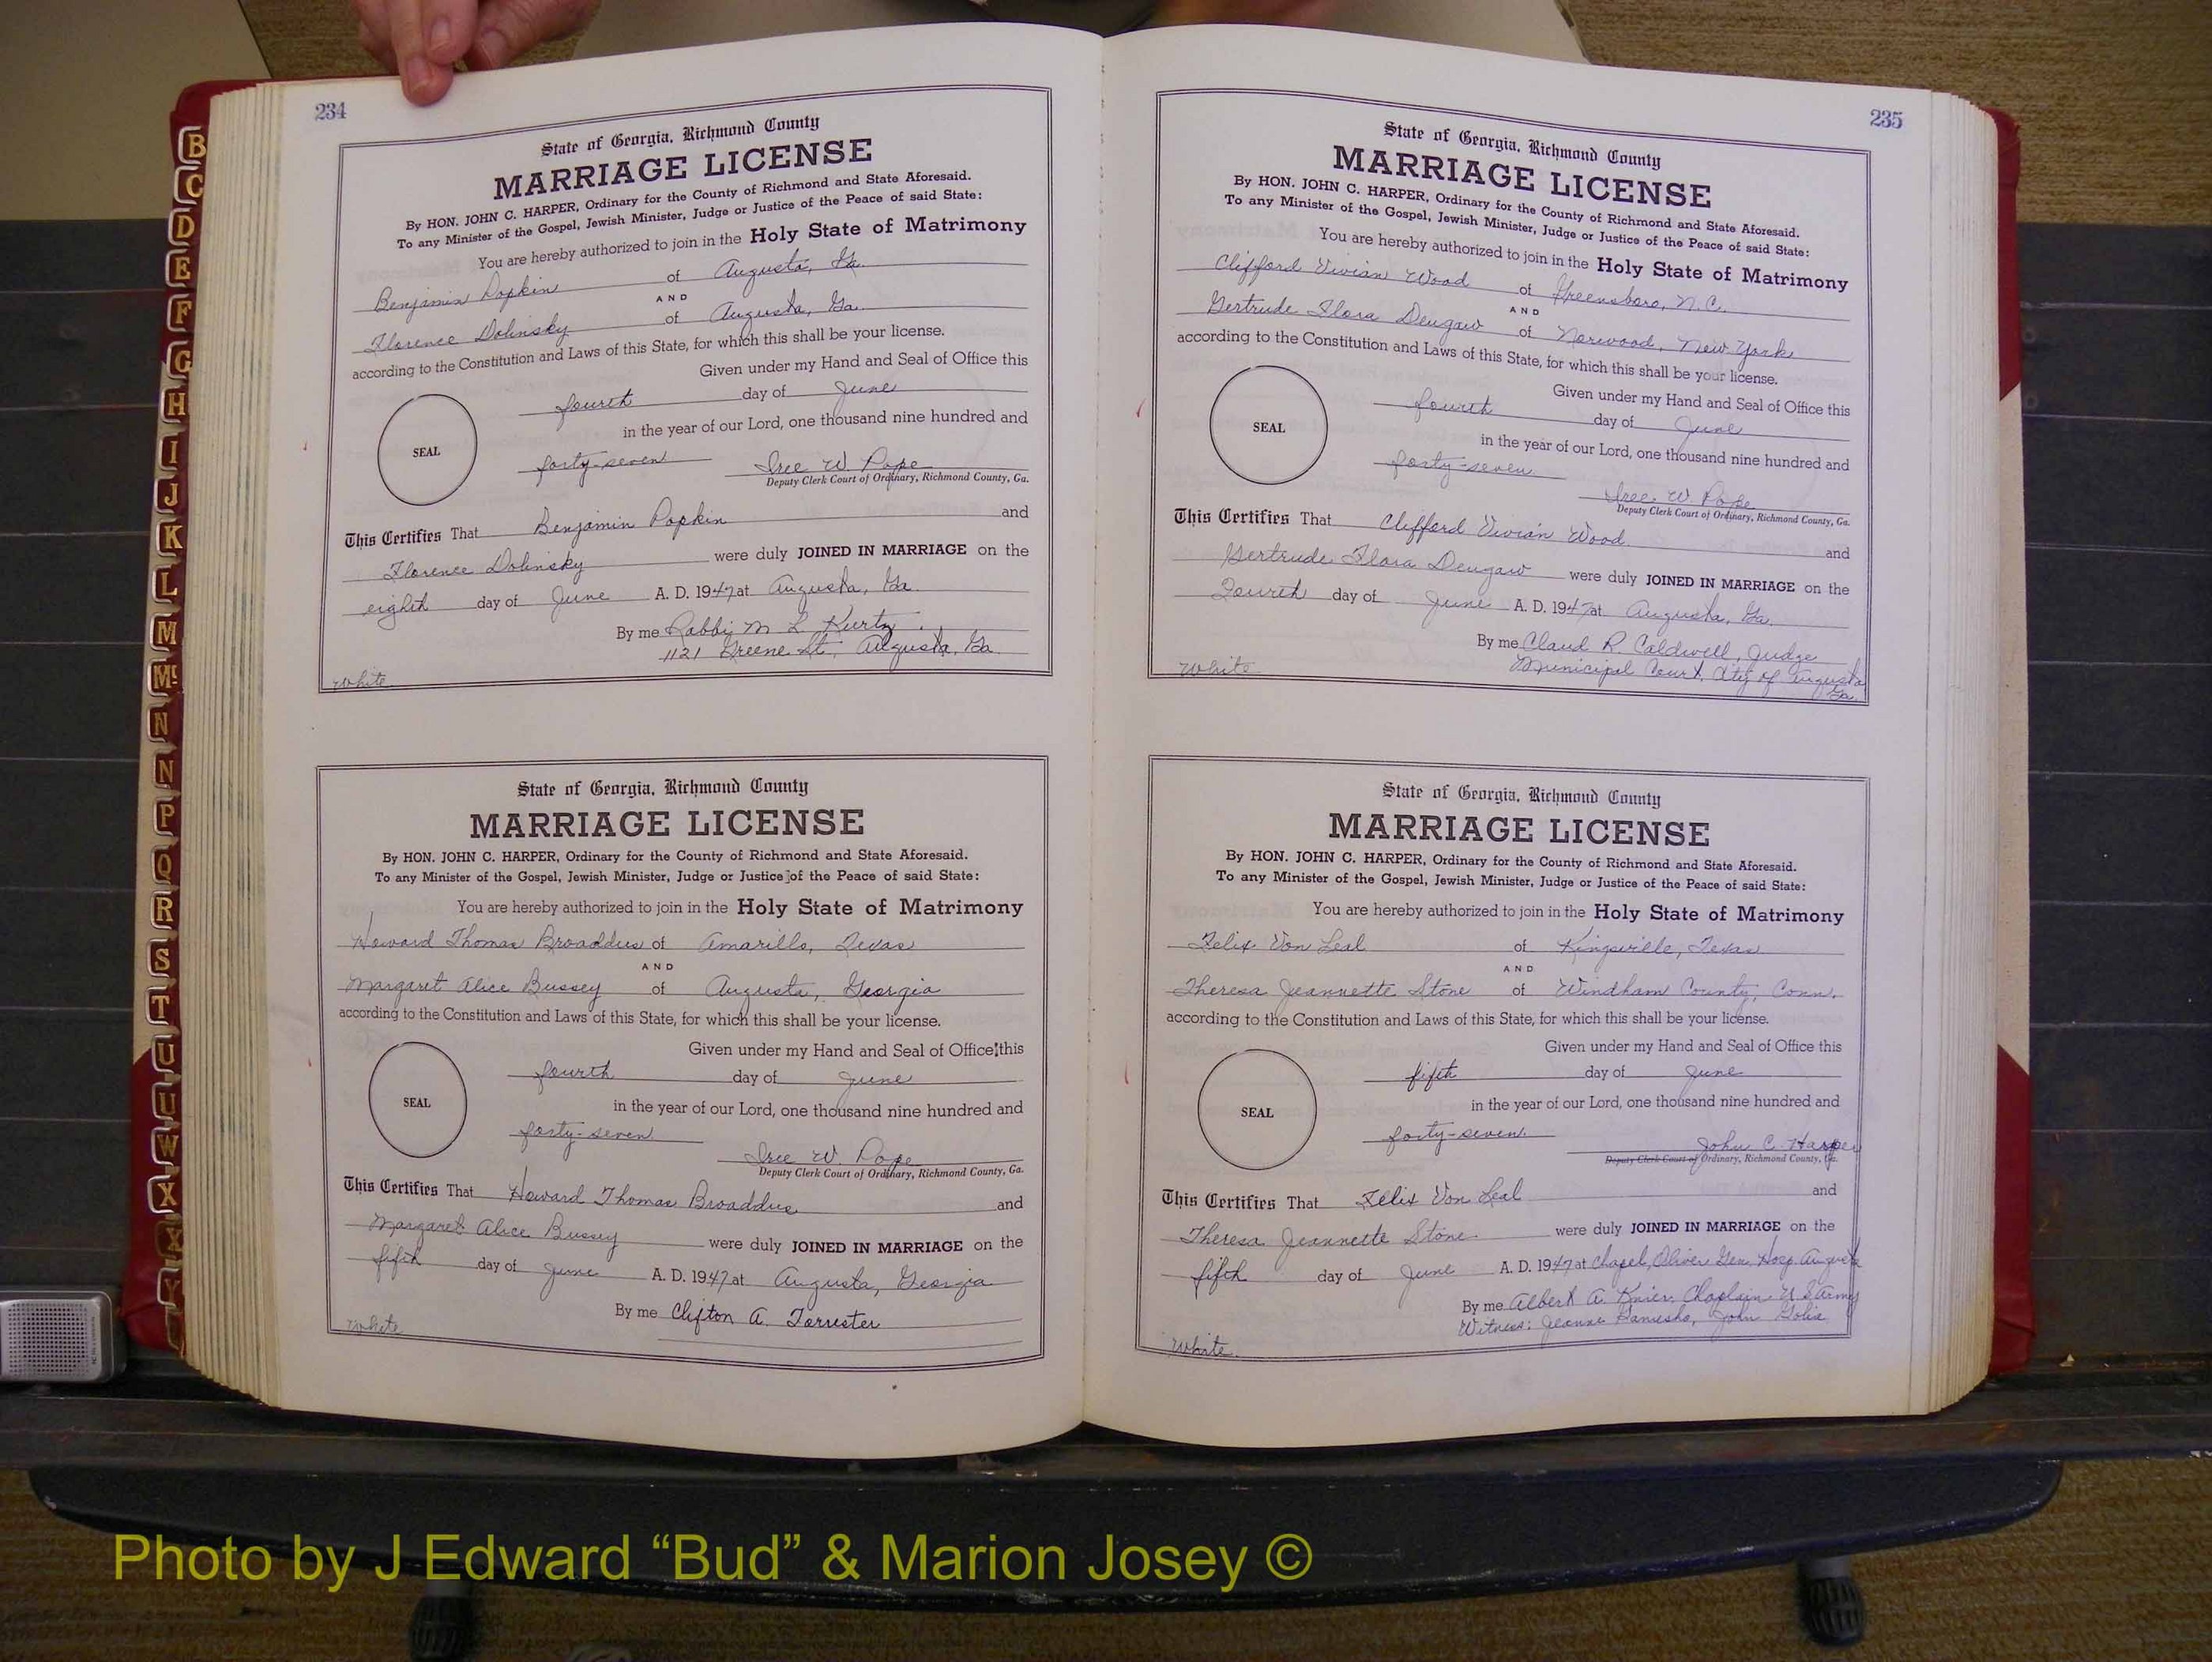 B
C
D
E
F
G
H
I
J
K
L
M
Mc
N
N
P
Q
R
S
T
U
U
W
X
X
Y
234
State of Georgia, Richmond County
MARRIAGE LICENSE
By HON. JOHN C. HARPER, Ordinary for the County of Richmond and State Aforesaid.
To any Minister of the Gospel, Jewish Minister, Judge or Justice of the Peace of said State:
You are hereby authorized to join in the Holy State of Matrimony
Benjamin Popkin of Augusta, Ga.
AND
Florence Dolinsky of Augusta, Ga.
according to the Constitution and Laws of this State, for which this shall be your license.
Given under my Hand and Seal of Office this
fourth day of June
in the year of our Lord, one thousand nine hundred and
SEAL
forty-seven Iree W. Pope
Deputy Clerk Court of Ordinary, Richmond County, Ga.
This Certifies That Benjamin Popkin and
Florence Dolinsky were duly JOINED IN MARRIAGE on the
eighth day of June A. D. 1947 at Augusta, Ga.
By me Rabbi M L Kurtz
1121 Greene St. Augusta, Ga.
White
State of Georgia, Richmond County
MARRIAGE LICENSE
By HON. JOHN C. HARPER, Ordinary for the County of Richmond and State Aforesaid.
To any Minister of the Gospel, Jewish Minister, Judge or Justice of the Peace of said State:
You are hereby authorized to join in the Holy State of Matrimony
Howard Thomas Broaddus of Amarillo, Texas
AND
Margaret Alice Bussey of Augusta, Georgia
according to the Constitution and Laws of this State, for which this shall be your license.
Given under my Hand and Seal of Office this
fourth day of June
in the year of our Lord, one thousand nine hundred and
SEAL
forty-seven Iree W. Pope
Deputy Clerk Court of Ordinary, Richmond County, Ga.
This Certifies That Howard Thomas Broaddus and
Margaret Alice Bussey were duly JOINED IN MARRIAGE on the
fifth day of June A. D. 1947 at Augusta, Georgia
By me Clifton A. Forrester
White
235
State of Georgia, Richmond County
MARRIAGE LICENSE
By HON. JOHN C. HARPER, Ordinary for the County of Richmond and State Aforesaid.
To any Minister of the Gospel, Jewish Minister, Judge or Justice of the Peace of said State:
You are hereby authorized to join in the Holy State of Matrimony
Clifford Vivian Wood of Greensboro, N.C.
AND
Gertrude Flora Dengaw of Norwood, New York
according to the Constitution and Laws of this State, for which this shall be your license.
Given under my Hand and Seal of Office this
fourth day of June
in the year of our Lord, one thousand nine hundred and
SEAL
forty-seven
Iree W. Pope
Deputy Clerk Court of Ordinary, Richmond County, Ga.
This Certifies That Clifford Vivian Wood and
Gertrude Flora Dengaw were duly JOINED IN MARRIAGE on the
Fourth day of June A. D. 1947 at Augusta, Ga.
By me Claud R. Caldwell, Judge
Municipal Court, City of Augusta
Ga.
White
State of Georgia, Richmond County
MARRIAGE LICENSE
By HON. JOHN C. HARPER, Ordinary for the County of Richmond and State Aforesaid.
To any Minister of the Gospel, Jewish Minister, Judge or Justice of the Peace of said State:
You are hereby authorized to join in the Holy State of Matrimony
Felix Von Leal of Kingsville, Texas
AND
Theresa Jeannette Stone of Windham County, Conn.
according to the Constitution and Laws of this State, for which this shall be your license.
Given under my Hand and Seal of Office this
fifth day of June
in the year of our Lord, one thousand nine hundred and
SEAL
forty-seven. John C. Harper
Deputy Clerk Court of Ordinary, Richmond County, Ga.
This Certifies That Felix Von Leal and
Theresa Jeannette Stone were duly JOINED IN MARRIAGE on the
fifth day of June A. D. 1947 at Chapel, Oliver Gen. Hosp. Augusta
By me Albert A. Knier, Chaplain U.S. Army
Witness: Jeanne John Golia
White.
Photo by J Edward “Bud” & Marion Josey ©